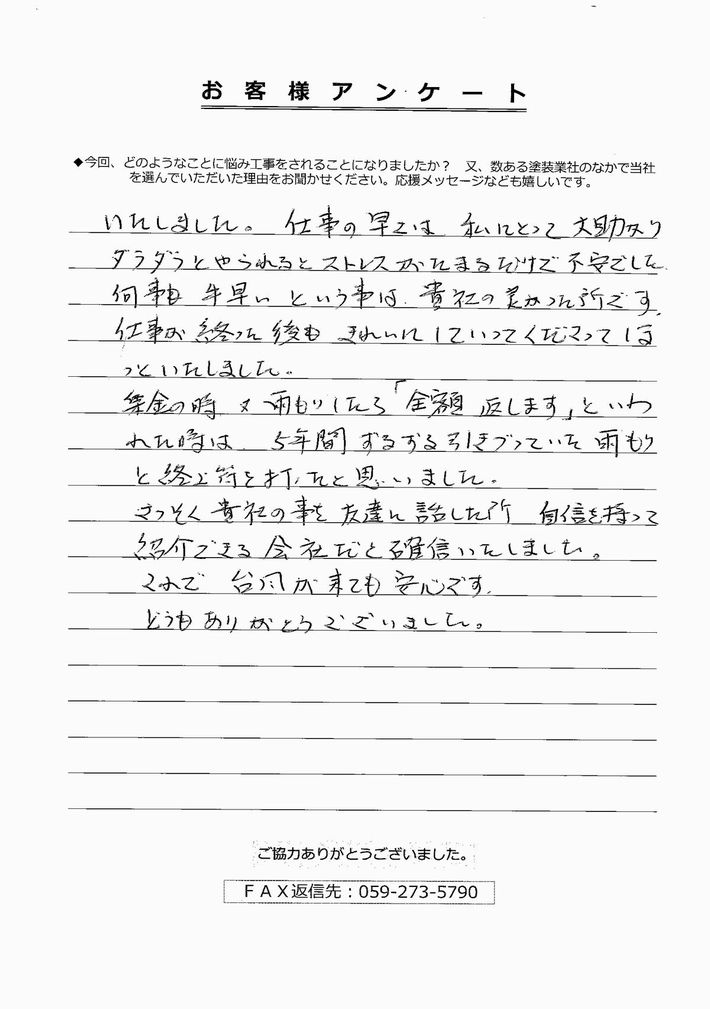 お客様アンケート
◆今回、どのようなことに悩み工事をされることになりましたか？　又、数ある塗装業社のなかで当社
を選んでいただいた理由をお聞かせください。応援メッセージなども嬉しいです。
いたしました。仕事の早さは 私にとって 大助かり
ダラダラとやられるとストレスがたまるだけで不安でした.
何事も手早いという事は、貴社の良かった所です.
仕事が終った後も きれいにしていってくださってほ
っといたしました。
集金の時 又 雨もりしたら「全額 返します」といわ
れた時は、5年間ずるずる引きづっていた雨もり
と終止符を打ったと思いました。
さっそく貴社の事を友達に話した所 自信を持って
紹介できる会社だと確信いたしました。
これで 台風が来ても安心です.
どうもありがとうございました。
ご協力ありがとうございました。
ＦＡＸ返信先：059-273-5790